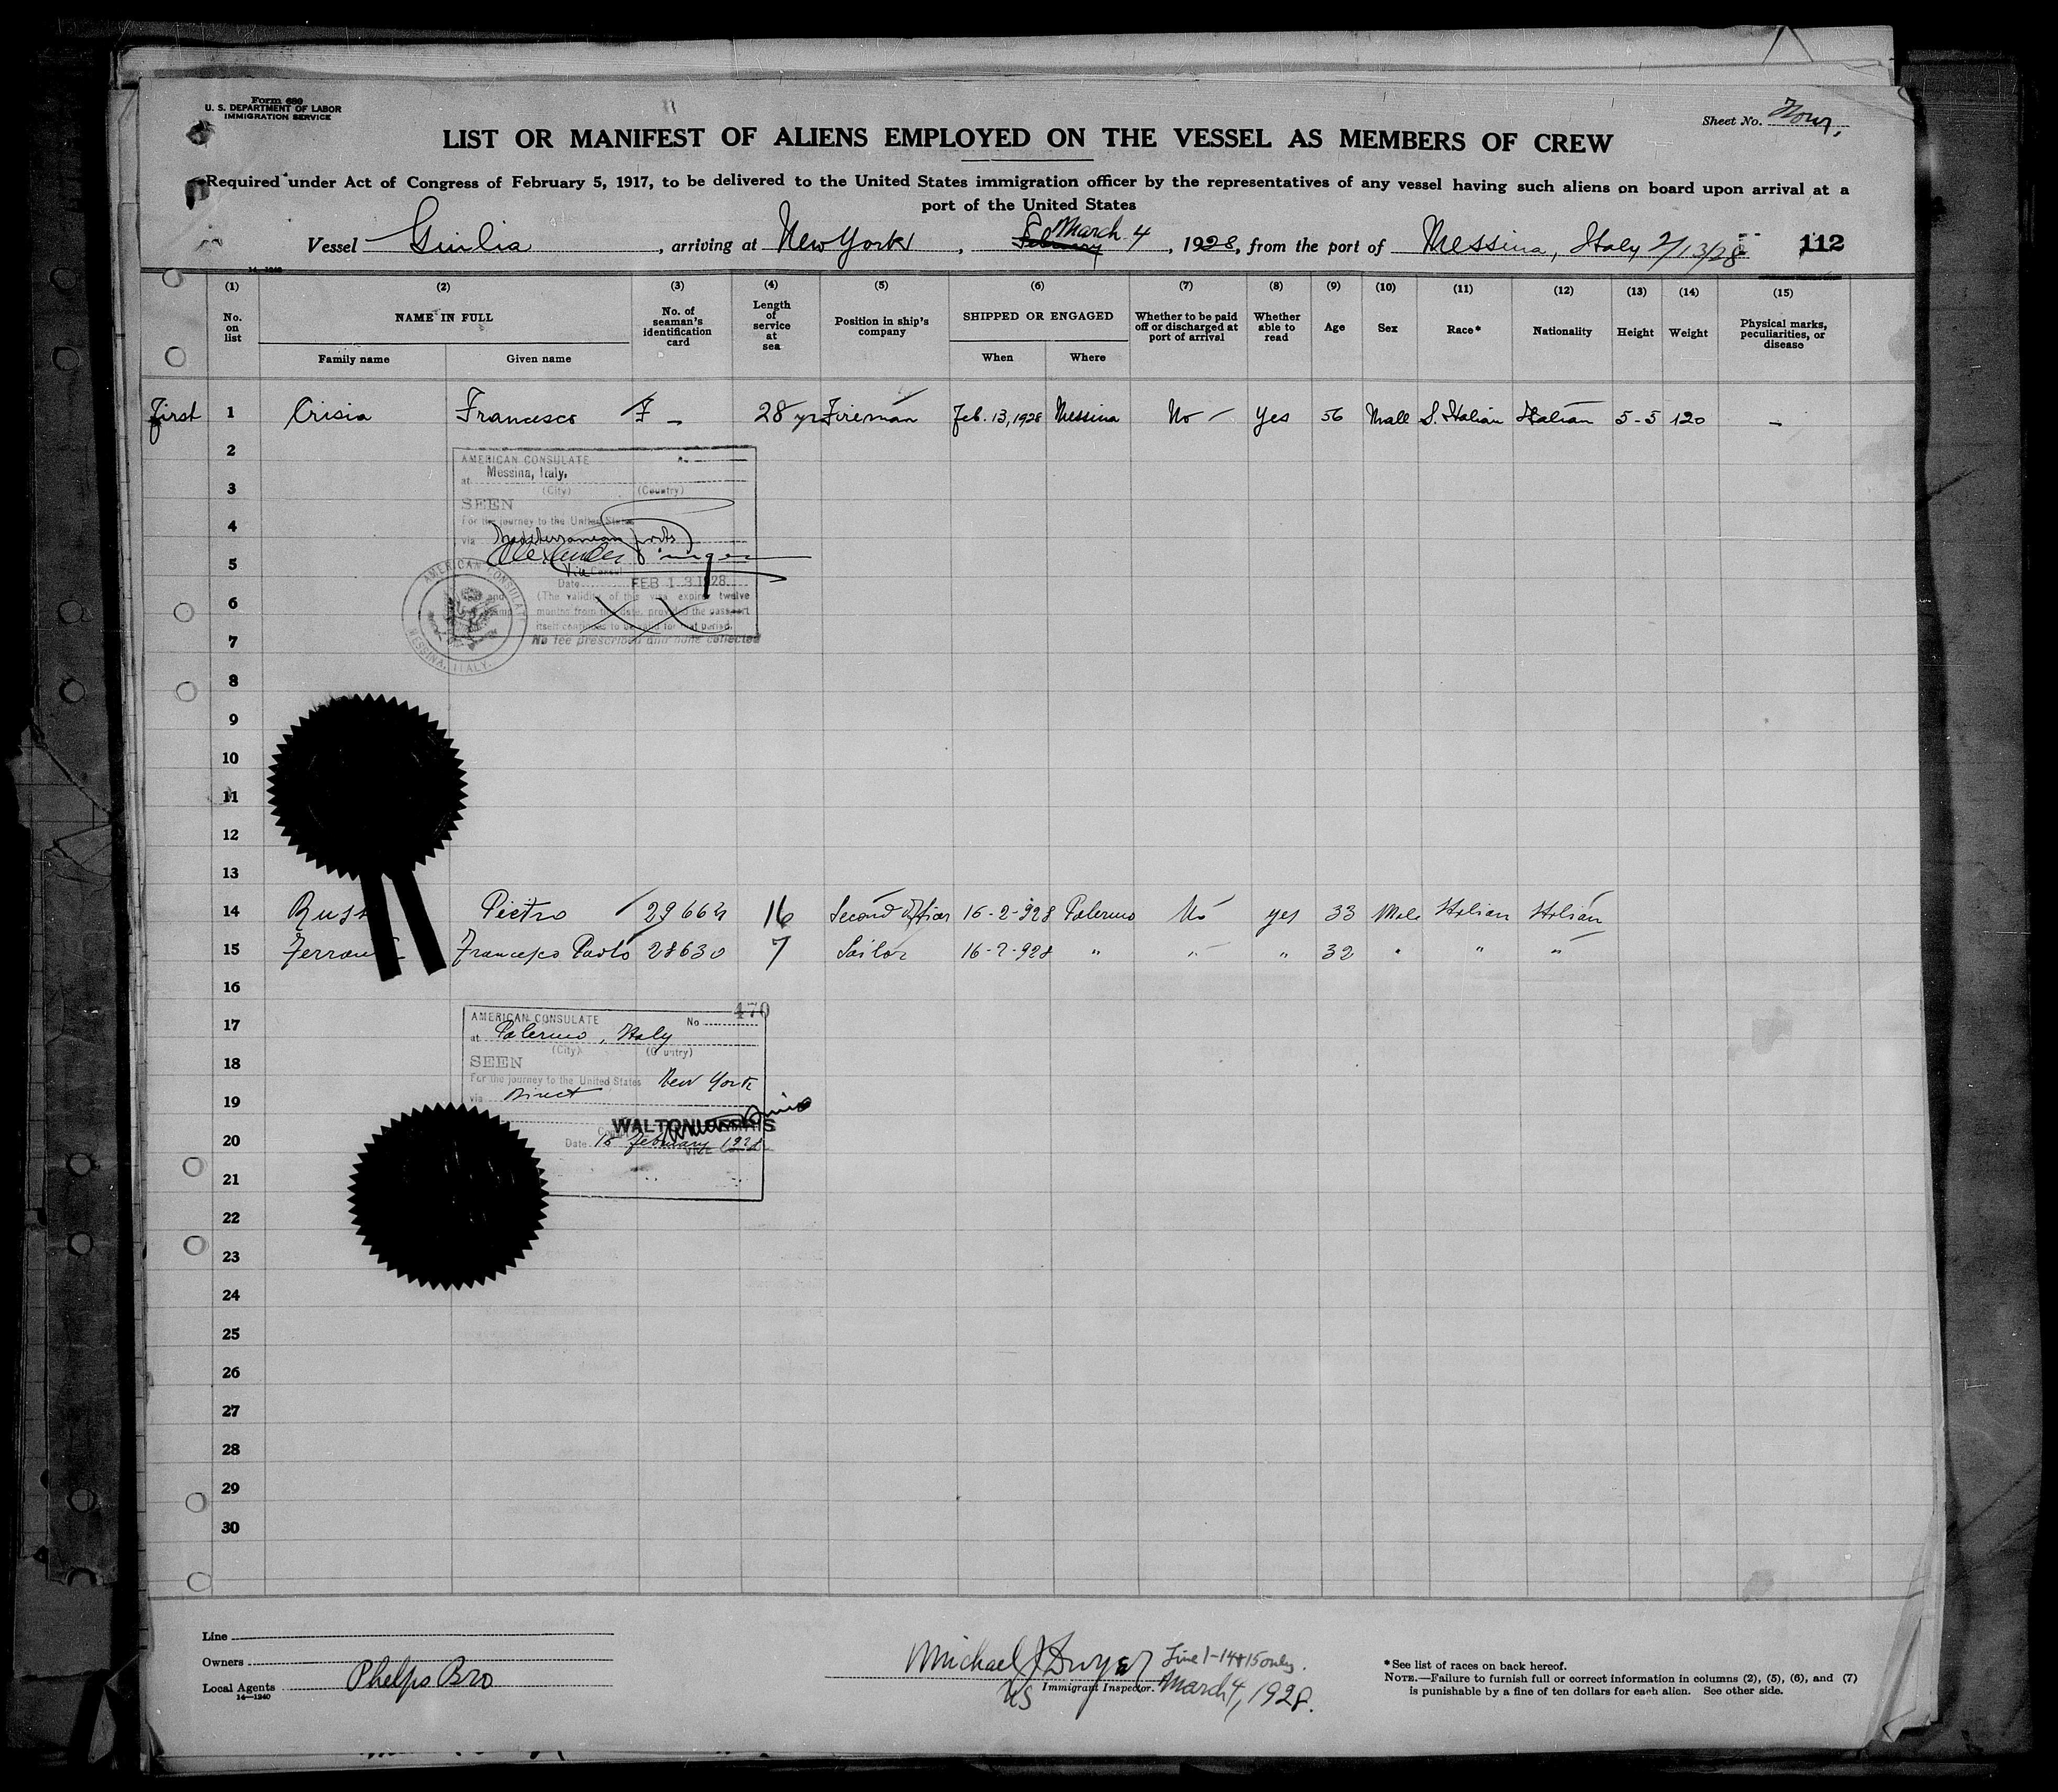 Form 680
U. S. DEPARTMENT OF LABOR
IMMIGRATION SERVICE
Sheet No. Four,
LIST OR MANIFEST OF ALIENS EMPLOYED ON THE VESSEL AS MEMBERS OF CREW
Required under Act of Congress of February 5, 1917, to be delivered to the United States immigration officer by the representatives of any vessel having such aliens on board upon arrival at a
port of the United States
Vessel Giulia, arriving at New York, February March 4, 1928, from the port of Messina, Italy 2/13/28 112
14—1240
(1) (2) (3) (4) (5) (6) (7) (8) (9) (10) (11) (12) (13) (14) (15)
No. on list NAME IN FULL No. of seaman's identification card Length of service at sea Position in ship's company SHIPPED OR ENGAGED Whether to be paid off or discharged at port of arrival Whether able to read Age Sex Race* Nationality Height Weight Physical marks, peculiarities, or disease
Family name Given name When Where
First 1 Crisia Francesco F — 28 yrs Fireman Feb. 13, 1928 Messina No Yes 56 Male S. Italian Italian 5-5 120 —
2
AMERICAN CONSULATE No
at Messina, Italy.
3
(City) (Country)
SEEN
4
For the journey to the United States
via Mediterranean ports
Alexander
5
Vice Consul
Date FEB 13 1928
6
(The validity of this visa expires twelve
months from this date, provided the passport
itself continues to be valid for that period.
7
No fee prescribed and none collected
AMERICAN CONSULATE
MESSINA, ITALY.
8
9
10
11
12
13
14 Pietro 29664 16 Second Officer 16-2-928 Palermo No yes 33 Male Italian Italian
15 Francesco Paolo 28630 7 Sailor 16-2-928 " " " 32 " " "
16
470
17
AMERICAN CONSULATE No
at Palermo, Italy
(City) (Country)
18
SEEN
For the journey to the United States New York
via Direct
19
20
Date 16 February 1928
21
22
23
24
25
26
27
28
29
30
Line
Owners
Local Agents Phelps Bro
14—1240
Michael J Dwyer Line 1-14+15 only.
US Immigrant Inspector. March 4, 1928.
*See list of races on back hereof.
NOTE.—Failure to furnish full or correct information in columns (2), (5), (6), and (7)
is punishable by a fine of ten dollars for each alien. See other side.